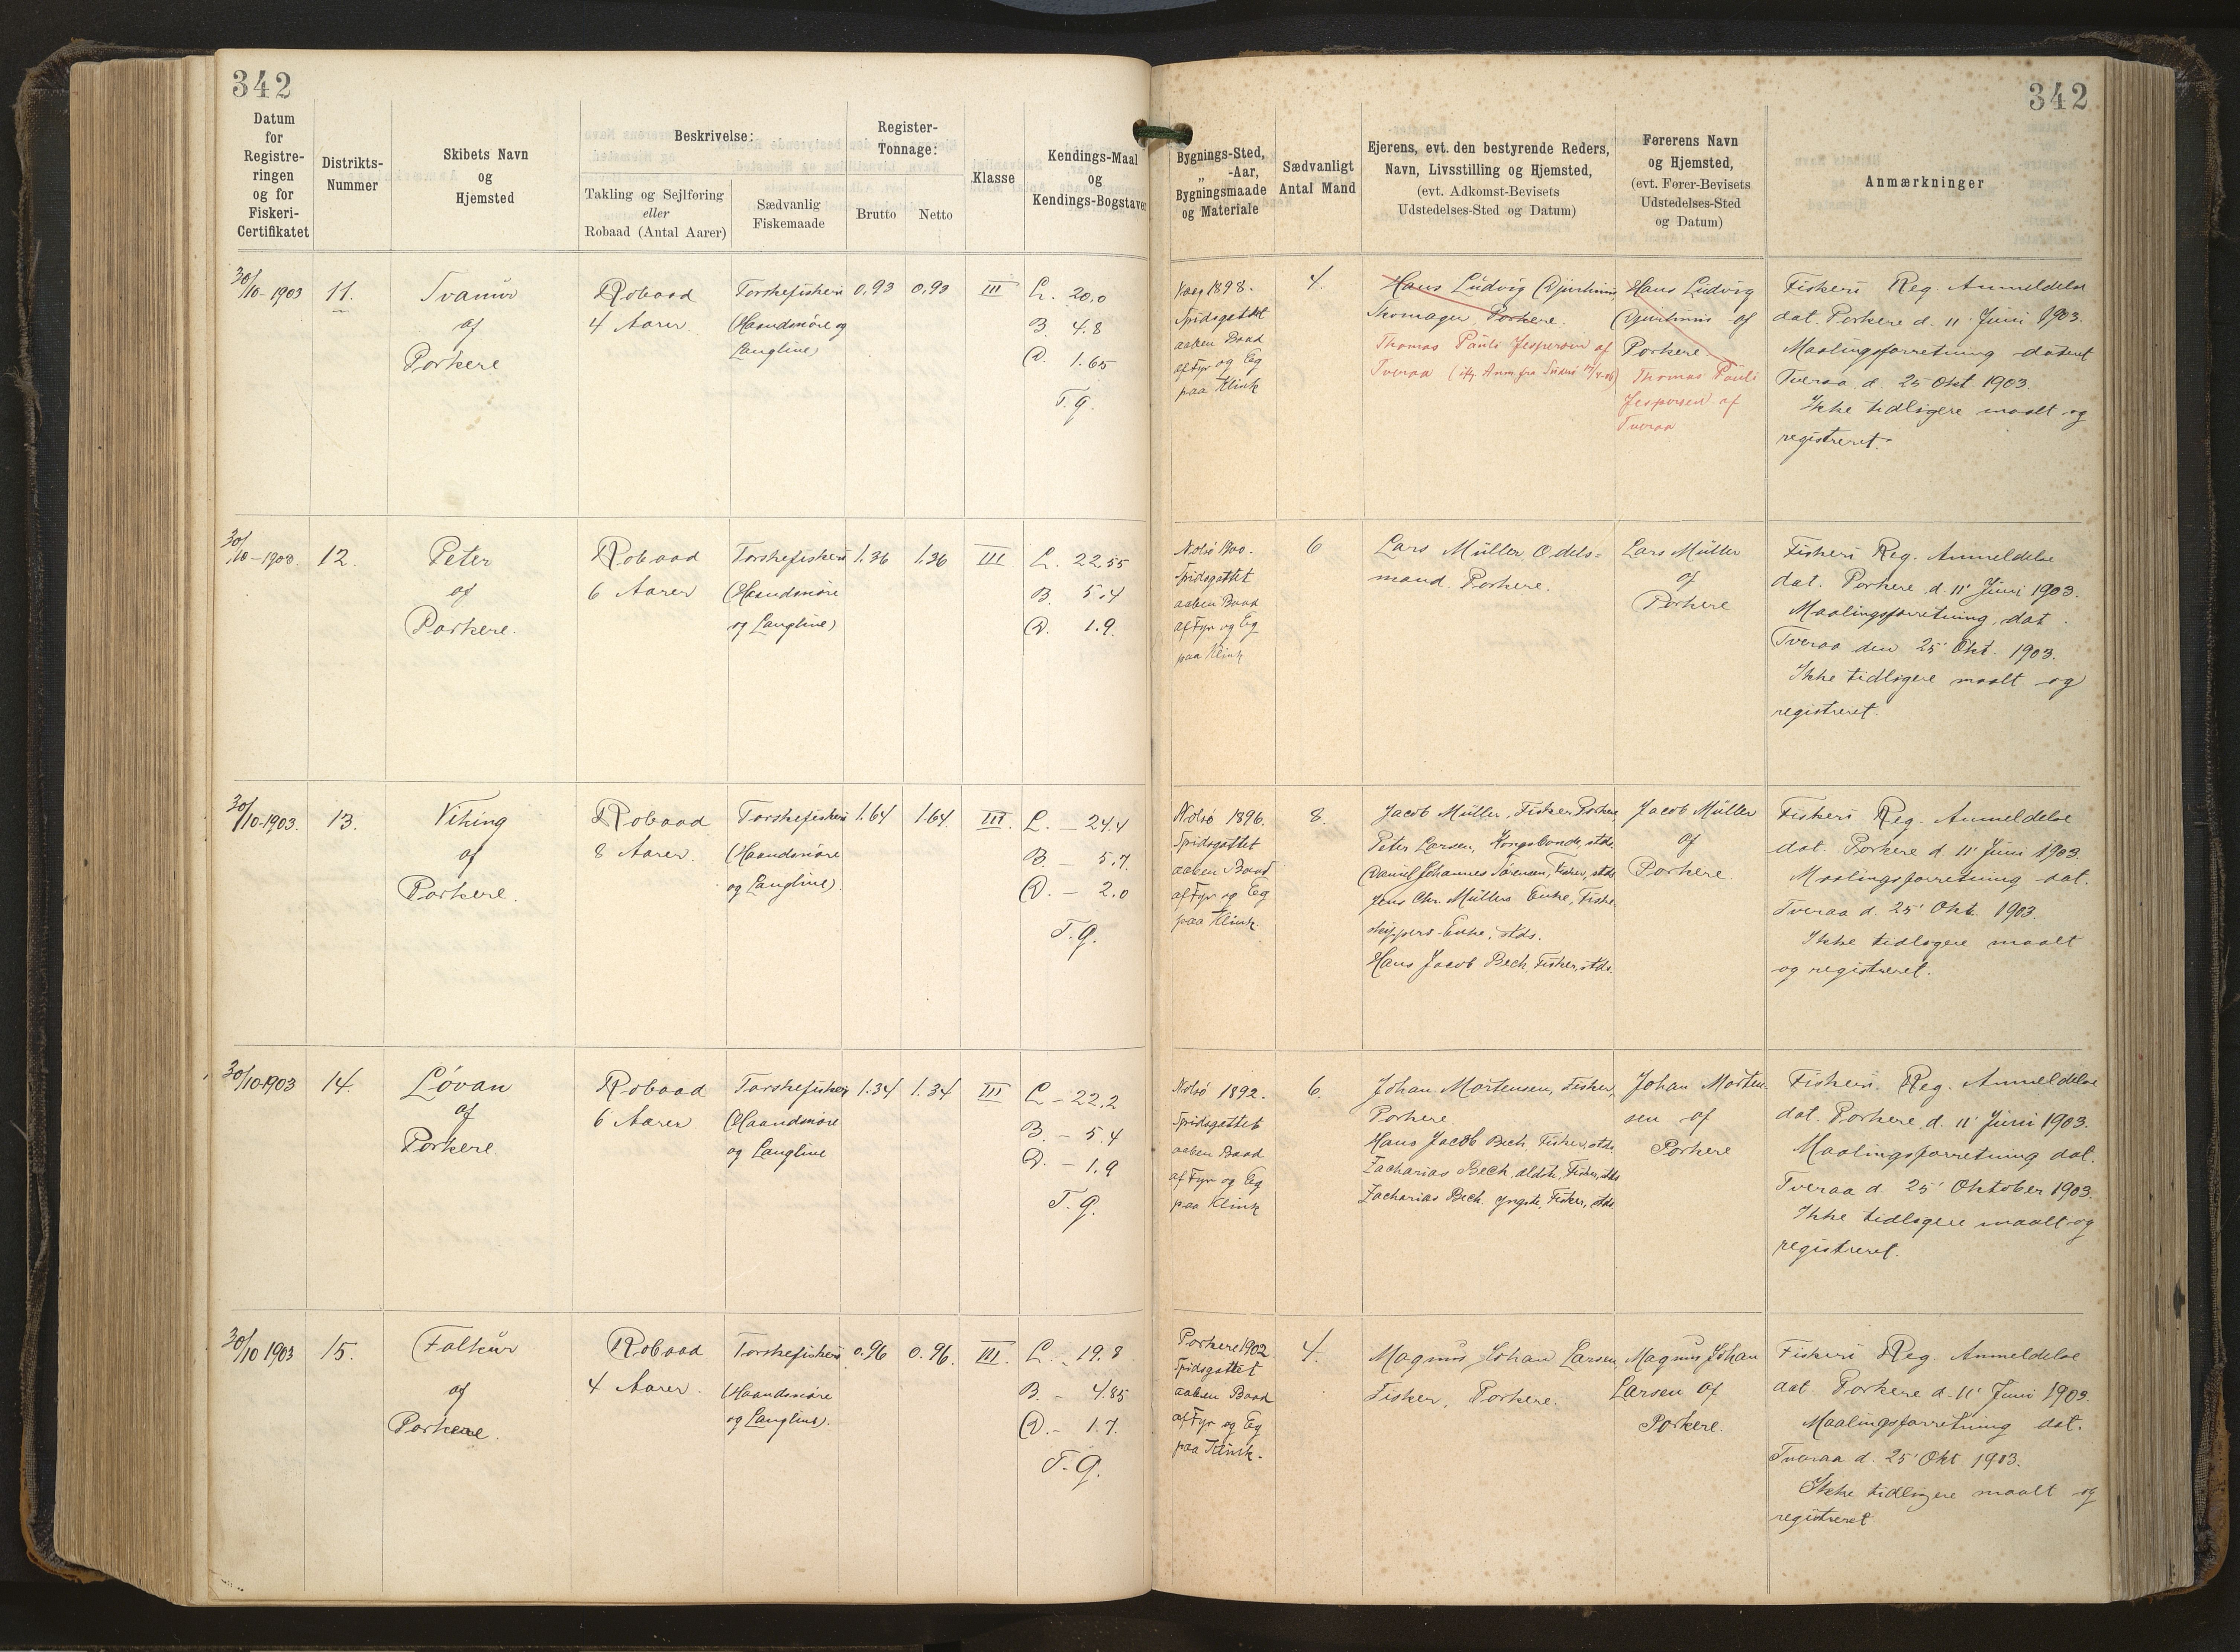 342
342
Datum
for
Registre-
ringen
og for
Fiskeri-
Certifikatet
Distrikts-
Nummer
Skibets Navn
og
Hjemsted
Beskrivelse:
Takling og Sejlføring
eller
Robaad (Antal Aarer)
Sædvanlig
Fiskemaade
Register-
Tonnage:
Brutto
Netto
Klasse
Kendings-Maal
og
Kendings-Bogstaver
Bygnings-Sted,
„ -Aar,
Bygningsmaade
og Materiale
Sædvanligt
Antal Mand
Ejerens, evt. den bestyrende Reders,
Navn, Livsstilling og Hjemsted,
(evt. Adkomst-Bevisets
Udstedelses-Sted og Datum)
Førerens Navn
og Hjemsted,
(evt. Fører-Bevisets
Udstedelses-Sted
og Datum)
Anmærkninger
30/10-1903
11.
Svanur
af
Porkere
Robaad
4 Aarer.
Torskefiskeri
(Haandsnøre og
Langline)
0,93
0,93
III
L. 20,0
B. 4.8
D. 1.65
T.g.
Vaag 1898.
Spidsgattet
aaben Baad
af Fyr og Eg
paa Klink
4.
Hans Ludvig Djurhuus,
Skomager, Porkere.
Thomas Pauli Jespersen af
Tveraa
Hans Ludvig
Djurhuus af
Porkere
Thomas Pauli
Jespersen af
Tveraa
Fiskeri Reg. Anmeldelse
dat. Porkere d. 11' Juni 1903.
Maalingsforretning dateret
Tveraa d. 25 Okt. 1903.
Ikke tidligere maalt og
registreret.
30/10-1903.
12.
Peter
af
Porkere.
Robaad
6 Aarer
Torskefiskeri
(Haandsnøre
og Langline)
1.36
1.36
III.
L. 22,55
B. 5.4
D. 1.9.
Nolsø 1900.
Spidsgattet
aaben Baad
af Fyr og Eg
paa Klink
6
Lars Müller, Odels=
mand. Porkere.
Lars Müller
af
Porkere
Fiskeri Reg. Anmeldelse
dat. Porkere d. 11' Juni 1903.
Maalingsforretning, dat.
Tveraa den 25' Okt. 1903.
Ikke tidligere maalt og
registreret.
30/10-1903.
13.
Viking
af
Porkere.
Robaad
8 Aarer.
Torskefiskeri
(Haandsnøre
og Langline).
1.64
1.64
III.
L. – 24.4
B. – 5.7
D. – 2.0
T.g.
Nolsø 1896.
Spidsgattet
aaben Baad
af Fyr og Eg
paa Klink.
8.
Jacob Müller, Fisker Porkere,
Peter Larsen, Kongsbonde, stds.
Daniel Johannes Sørensen, Fisker, stds.
Jens Chr. Müllers Enke, Fiske-
skippers-Enke, stds.
Hans Jacob Bech, Fisker, stds.
Jacob Müller
af
Porkere.
Fiskeri Reg. Anmeldelse
dat. Porkere d. 11' Juni 1903.
Maalingsforretning dat.
Tveraa d. 25' Okt. 1903.
Ikke tidligere maalt
og registreret.
30/10-1903
14.
Løvan
af
Porkere.
Robaad
6 Aarer
Torskefiskeri
(Haandsnøre
og Langline
1.34
1.34
III
L – 22.2
B. – 5.4
D. – 1.9
T.g.
Nolsø 1892.
Spidsgattet
aaben Baad
af Fyr og Eg
paa Klink
6.
Johan Mortensen, Fisker,
Porkere.
Hans Jacob Bech, Fisker, stds.
Zacharias Bech, ældste, Fisker, stds
Zacharias Bech yngste, Fisker, stds
Johan Morten-
sen af
Porkere
Fiskeri. Reg. Anmeldelse
dat. Porkere, d. 11' Juni 1903.
Maalingsforretning dat.
Tveraa d. 25' Oktober 1903.
Ikke tidligere maalt og
registreret.
30/10 1903
15.
Falkur
af
Porkere.
Robaad
4 Aarer.
Torskefiskeri
(Haandsnøre
og Langline).
0.96
0.96.
III.
L. – 19.8
B. – 4.85
D. – 1.7.
T.g.
Porkere 1902
Spidsgattet
aaben Baad
af Fyr og Eg
paa Klink.
4.
Magnus Johan Larsen,
Fisker, Porkere.
Magnus Johan
Larsen af
Porkere.
Fiskeri Reg. Anmeldelse
dat. Porkere d. 11' Juni 1903.
Maalingsforretning dat.
Tveraa d. 25' Okt 1903.
Ikke tidligere maalt og
registreret